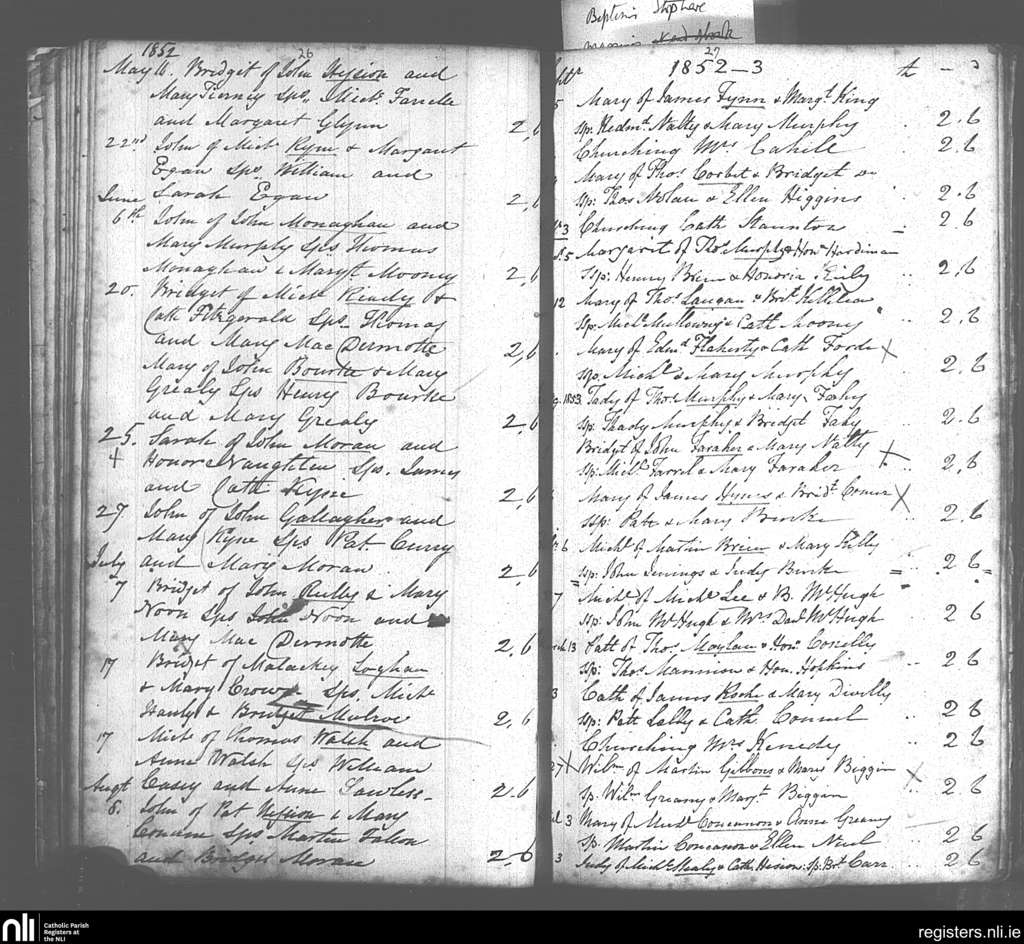 Baptisms
1852
26
May 16. Bridgit of John Hession and
Mary Tierney Sps. Mich. Farrell
and Margaret Glynn 2,6
22nd John of Mich. Kyne & Margaret
Egan Sps. William and
June Sarah Egan 2,6
6th John of John Monaghan and
Mary Murphy Sps Thomas
Monaghan & Mary Mooney 2,6
20. Bridget of Mich. Ready &
Cath Fitzgerald Sps. Thomas
and Mary Mac Dermotte 2,6
Mary of John Bourke & Mary
Grealy Sps Henry Bourke
and Mary Grealy 2,6
25. Sarah of John Moran and
+ Honor Naughten Sps. James
and Cath Kyne 2,6
27 John of John Gallagher and
Mary Kyne Sps Pat. Curry
July and Mary Moran 2,6
7 Bridget of John Reilly & Mary
Noon Sps John Noon and
Mary Mac Dermotte 2,6
17 Bridget of Malackey Loghan
& Mary Crowe Sps. Mich
Hanly & Bridget Mulroe 2,6
17 Mich of Thomas Walsh and
Anne Walsh Sps William
Augt Casey and Anne Lawless 2.6
8. John of Pat Hession & Mary
Sps. Martin Falon
and Bridget Moran 2,6
27
1852-3
Mary of James Fynn & Margt. King
Sp: Redmd. Nalty & Mary Murphy 2.6
Churching Mrs Cahill 2.6
Mary of Thos. Corbet & Bridget
Sp: Thos Nolan & Ellen Higgins 2.6
3 Churching Cath Staunton 2.6
5 Margaret of Thos. Murphy & Honr Hardiman
Ssp: Henry & Honoria 2.6
12 Mary of Thos. Langan & Brt. Killilea
Sp: Michl. Mullowney & Cath Mooney 2.6
Mary of Edmd. Flaherty & Cath Forde X
Sp. Michl. & Mary Murphy 2.6
1853 Tady of Thos. Murphy & Mary Fahy
Sp: Thady Murphy & Bridget Fahy 2.6
Bridgt of John Faraher & Mary Nalty X
Sp: Michl. Farrel & Mary Faraher 2.6
Mary of James Hynes & Bridt. X
Ssp: Patt & Mary Burke 2.6
6 Michl. of Martin & Mary
Ssp: John Jenings & Judy Burke 2 6
7 Michl. of Michl. Lee & B. McHugh
Ssp: John McHugh & Mrs Danl McHugh 2 6
13 Patt of Thos. Moylan & Honr. Conelly
Ssp: Thos. Mannion & Hon. Hopkins 2 6
3 Cath of James Roche & Mary Divelly
Sp: Patt Lally & Cath. 2 6
Churching Mrs Kenedy 2 6
27 X Wilm. of Martin Gibbons & Mary Biggin X
Sp. Wilm. Greany & Margt. Biggin 2 6
3 Mary of Michl. Concannon & Anne Greany
Sp. Martin Concanon & Ellen 2 6
3 Judy of Michl. Healy & Cath. Hession: Sp: Brt. Carr 2 6
nli
Catholic Parish
Registers at
the NLI
registers.nli.ie